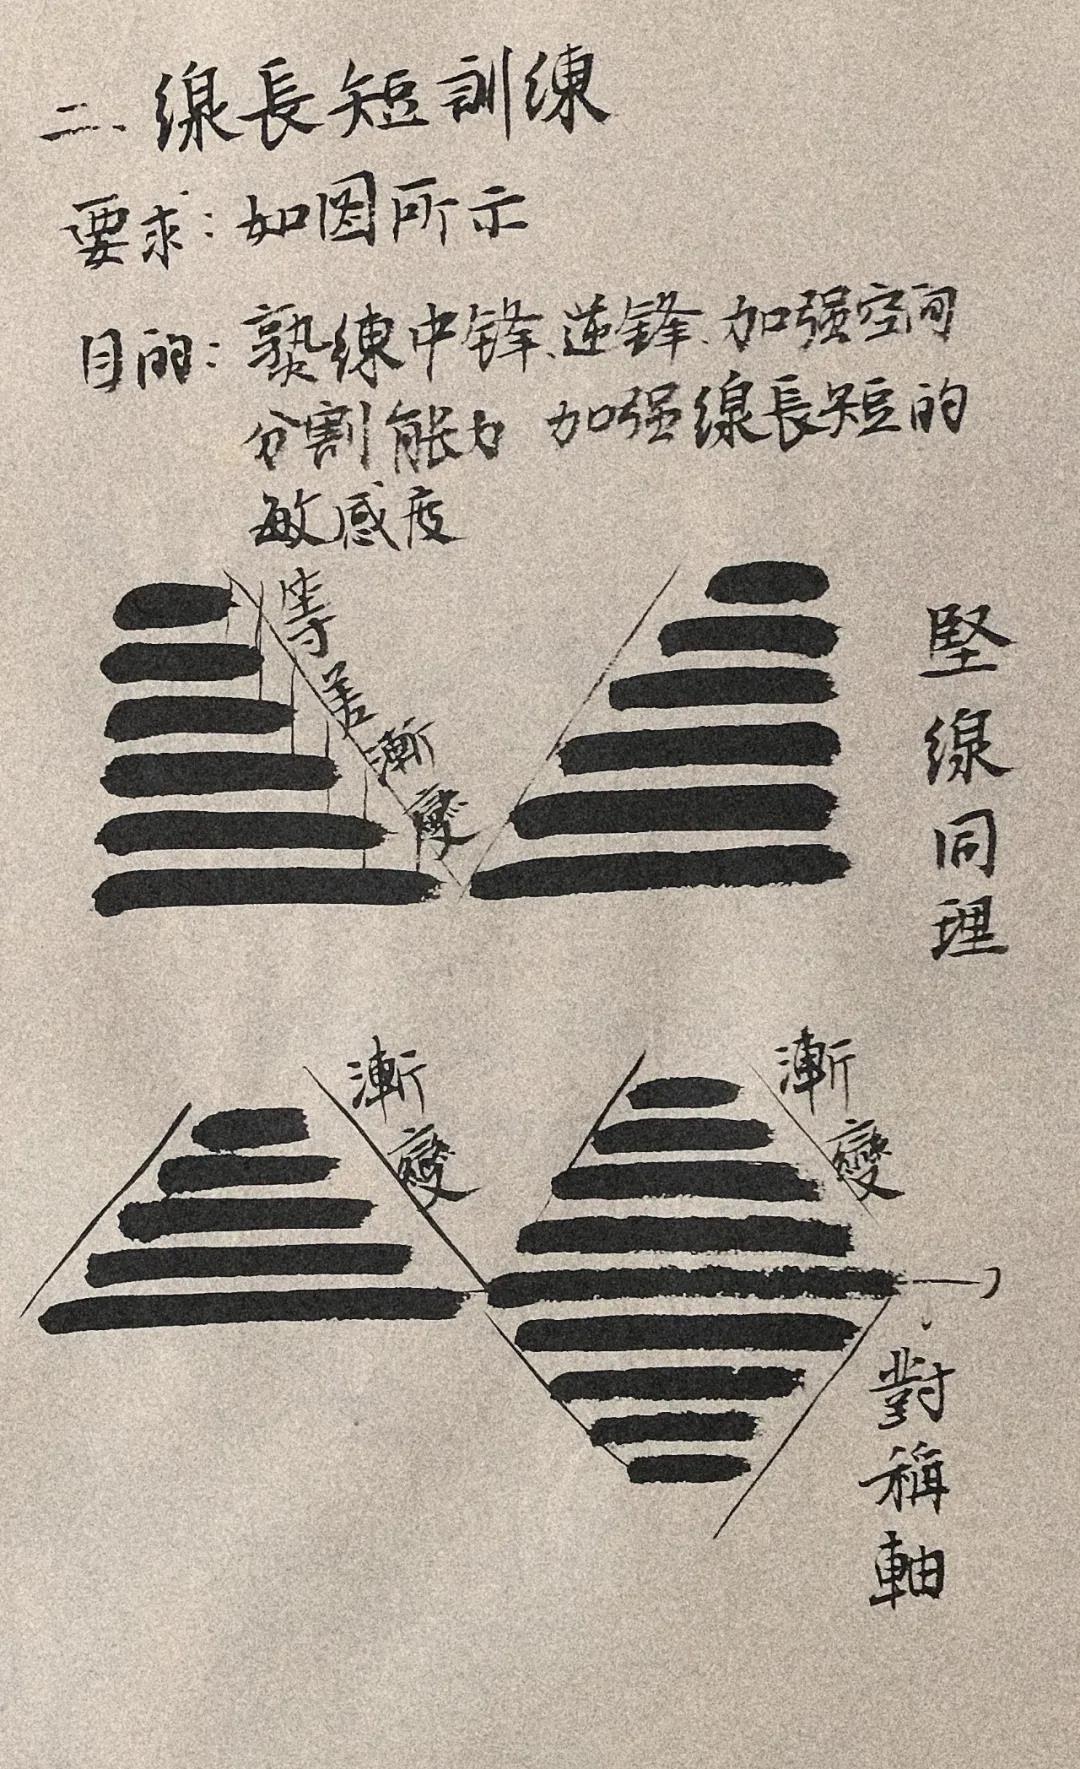 二、線長短訓練
要求：如图所示
目的：熟練中锋、逆锋、加强空间
分割能力 加强線長短的
敏感度
等差漸變
竪線同理
漸變
漸變
對稱軸